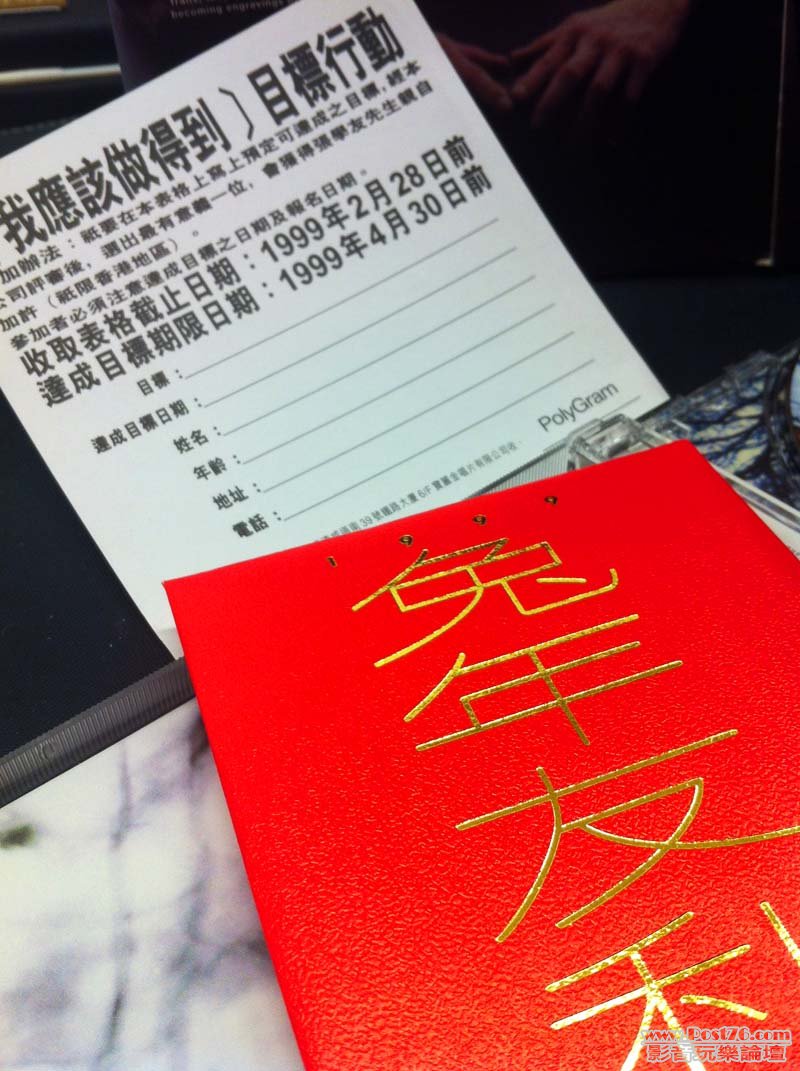 becoming engravings
我應該做得到〕目標行動
加辦法：祇要在本表格上寫上預定可達成之目標，經本
公司評審後，選出最有意義一位，會獲得張學友先生親自
加許（祇限香港地區）。
參加者必須注意達成目標之日期及報名日期。
收取表格截止日期：1999年2月28日前
達成目標期限日期：1999年4月30日前
目標：
達成目標日期：
姓名：
年齡：
地址：
電話：
PolyGram
39號鐵路大廈6/F寶麗金唱片有限公司收。
1999
兔年友利
www.Post76.com
影音玩樂論壇